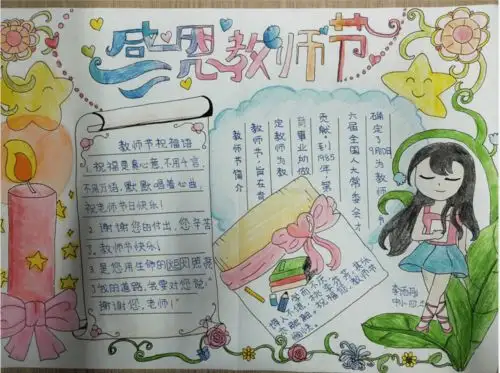 感恩教师节
教师节祝福语
1. 祝福是真心意,不用千言,
不用万语,默默唱着心曲,
祝老师节日快乐!
2. 谢谢您的付出,您辛苦
了,教师节快乐!
3. 是您用生命的
了我的道路,我要对您说:"
谢谢您,老师!"
教师节简介
教师节,旨在肯
定教师为教
育事业的做
贡献,到1985年,第
六届全国人大常委会才
确定了9月10日为教师
学而不厌,
诲人不倦,桃李芬芳,其乐
亦融融。祝福您,教师节
愉快。